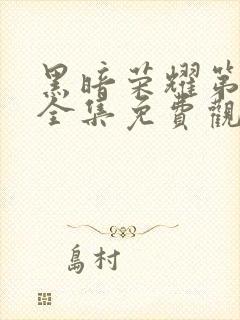 黑暗荣耀第
全集免費觀
島村